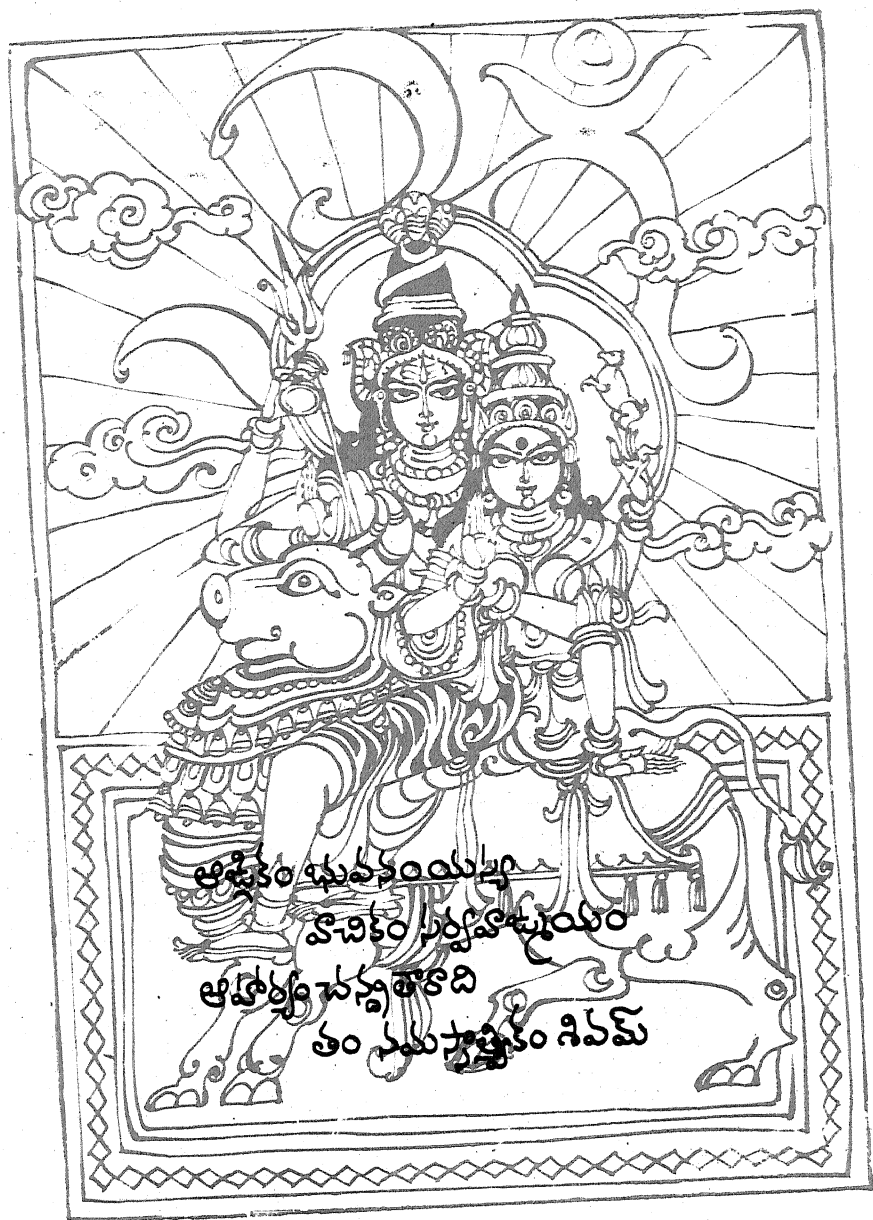 ఆఙ్గికం భువనం యస్య
వాచికం సర్వవాఙ్మయం
ఆహార్యం చన్ద్రతారాది
తం నమస్సాత్త్వికం శివమ్